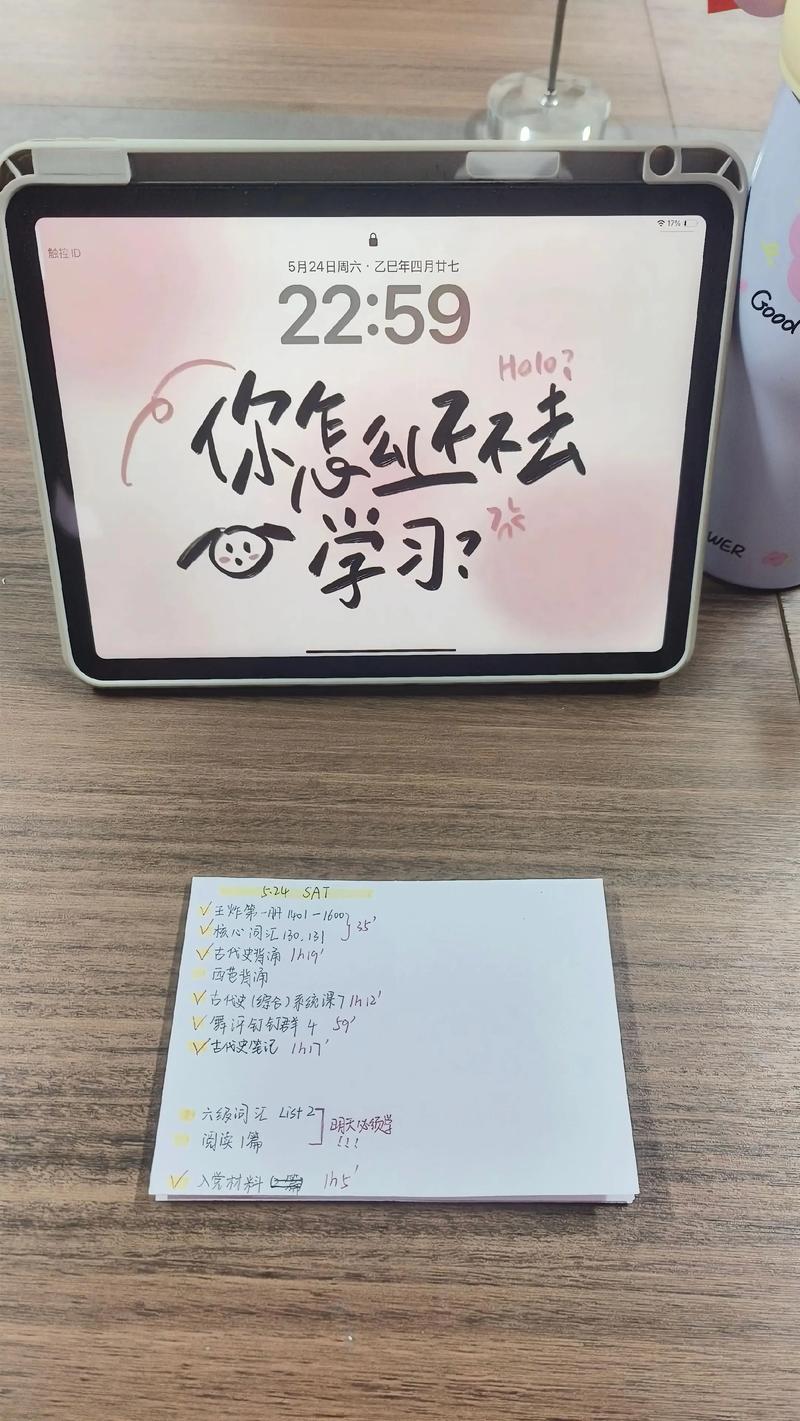 触控 ID
17%
5月24日周六·乙巳年四月廿七
22:59
Holo?
你怎么还不去
学习?
Good
WER
5.24 SAT
王炸第一册 1401-1600
核心词汇 130,131 35'
古代史背诵 1h19'
西芭背诵
古代史(综合)系统课7 1h12'
舞评钉钉群 4 59'
古代史笔记 1h17'
六级词汇 List 2
阅读1篇
明天必须学
!!!
入党材料 1h5'